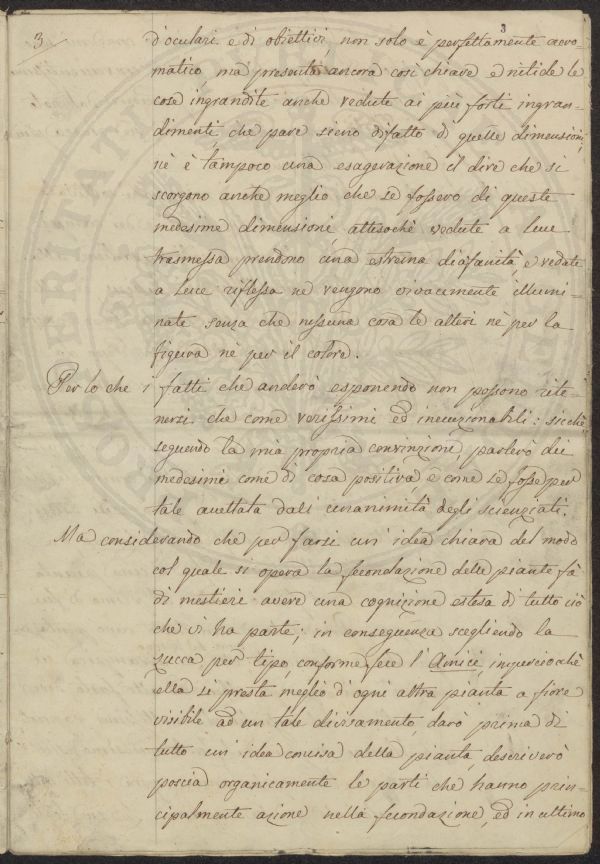 3
3
d'oculari e di obiettivi, non solo è perfettamente acro-
matico ma presenta ancora così chiare e nitide le
cose ingrandite anche vedute ai più forti ingran-
dimenti, che pare sieno difatto di quelle dimensioni,
nè è tampoco una esagerazione il dire che si
scorgono anche meglio che se fossero di queste
medesime dimensioni, attesochè vedute a luce
trasmessa prendono una estrema diafanità, e vedute
a luce riflessa ne vengono vivacemente illumi-
nate senza che nessuna cosa le alteri nè per la
figura nè per il colore.
Per lo che i fatti che anderò esponendo non possono rite-
nersi che come verissimi ed ineccezionabili: sicchè
seguendo la mia propria convinzione, parlerò dei
medesimi come di cosa positiva e come se fosse per
tale accettata dall'unanimità degli scienziati.
Ma considerando che per farsi un'idea chiara del modo
col quale si opera la fecondazione delle piante fà
di mestieri avere una cognizione estesa di tutto ciò
che vi ha parte; in conseguenza scegliendo la
zucca per tipo, conforme fece l'Amici, imperciochè
ella si presta meglio d'ogni altra pianta a fiore
visibile ad un tale divisamento, darò prima di
tutto un'idea concisa della pianta, descriverò
poscia organicamente le parti che hanno prin-
cipalmente azione nella fecondazione, ed in ultimo